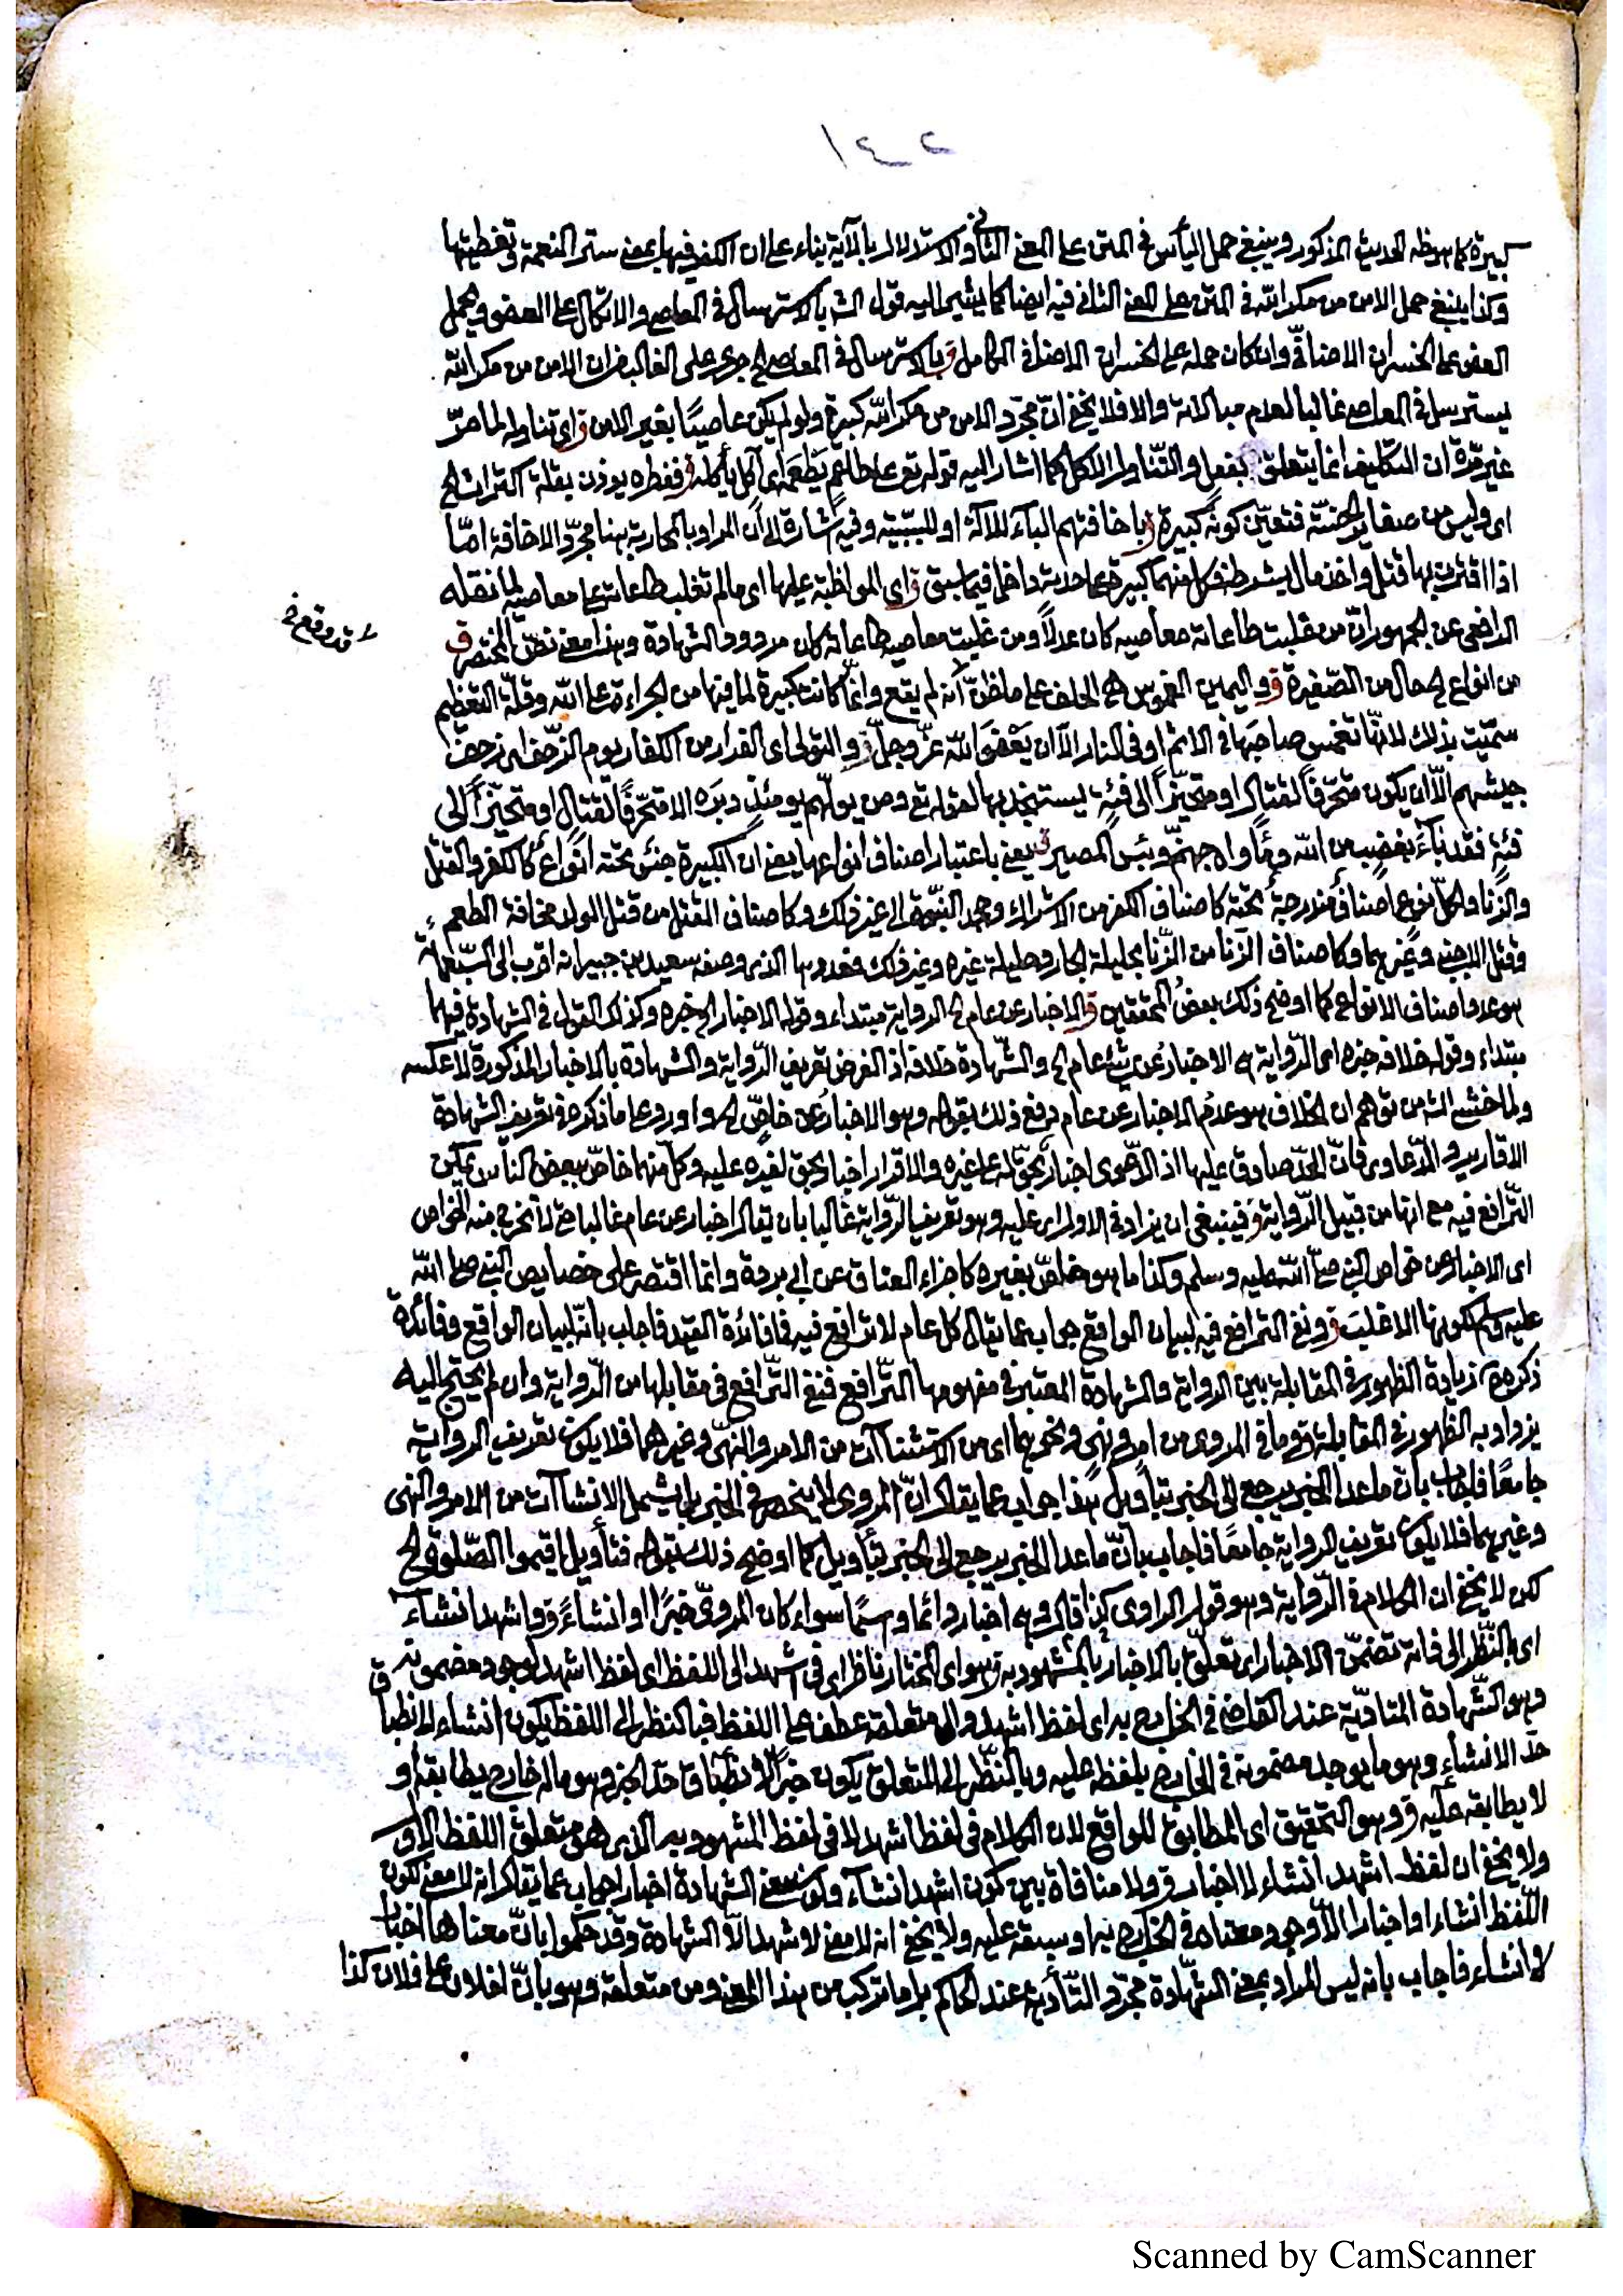 ١٤٢
كبيرة كما هو ظه الحديث المذكور وينبغي حمل اليأس في المتن على المعنى الثاني والاستدلال بالآية بناء على ان الكفر فيها بمعنى ستر النعمة وتغطيتها
وكذا ينبغي حمل الامن من مكر الله في المتن على المعنى الثاني فيه ايضا كما يشير اليه قول الشـ بالاسترسال في المعاصي والاتكال على العفو ويحمل
العفو على الخسران الاضافي وان كان حمله على الخسران الكامل ق بالاسترسال في المعاصي جرى على الغالب فان الامن من مكر الله
يسترسل في المعاصي غالبا لعدم مبالاته والا فلا يخفى ان مجرد الامن من مكر الله كبيرة ولو لم يكن عاصيًا بغير الامن ق اي تناوله لما مرّ
غير مرّة ان التكليف انما يتعلق بفعل والتناول الاكل كما اشار اليه قوله تع على طاعم يطعمه اي آكل يأكله ق ففطره يوذن بقلة اكتراث الخ
اى وليس من صغاير الخسّة فتعيّن كونه كبيرة ق باخافتهم الباء للآلة او للسببية وفيه اشارة الى أن المراد بالمحاربة هنا مجرّد الاخافة امّا
اذا اقترن بها قتل واخذ مال بشرطه فكل منهما كبيرة على حدته داخل فيما سبق ق اى المواظبة عليها اى ما لم تغلب طاعاته على معاصيه لما نقله
الرافعى عن الجمهور انّ من غلبت طاعاته معاصيه كان عدلاً ومن غلبت معاصيه طاعاته كان مردود الشهادة وهذا معنى نصّ المختصر ق
قد وقع خ
من انواع الحال من الصّغيرة ق واليمين الغموس هى الحلف على ما ظنّ أنه لم يقع وانّما كانت كبيرة لما فيها من الجراءة على الله وقلّة التعظيم
سمّيت بذلك لانّها تغمس صاحبها في الاثم او في النار الّا ان يعفو الله عزّ وجلّ ق والتولى اى الفرار من الكفار يوم الزّحف اى زحف
جيشهم الّا ان يكون متحرّفا لقتال او متحيّزاً الى فئة يستنجد بها لقوله تع ومن يولّهم يومئذ دبره الا متحرّفًا لقتال او متحيّزاً الى
فئة فقد بآء بغضب من الله ومأواه جهنّم وبئس المصير ق يعنى باعتبار اصناف انواعها يعنى ان الكبيرة جنس تحته انواع كالكفر والقتل
والزنا ولكلّ نوع اصناف مندرجة تحته كاصناف الكفر من الاشراك وجحد النبّوة الى غير ذلك وكاصناف القتل من قتل الولد مخافة الطعم
وقتل الاجنبى وغيرهما وكاصناف الزّنا من الزّنا بحليلة الجار وحليلة غيره وغير ذلك فعددها الذى وصفه سعيد بن جبير انه اقرب الى السّبعمائة
هو عدد اصناف الانواع كما اوضح ذلك بعض المحققين ق الاخبار عن عام الخ الرواية مبتداء وقوله الاخبار الخ خبره وكذلك القول في الشهادة فيهما
مبتداء وقوله خلافه خبره اى الرّواية هى الاخبار عن شئ عام الخ والشّهادة خلافه اذ الغرض تعريف الرّواية والشهادة بالاخبار المذكورة لا عكسه
ولما خشى الشـ من توهم ان الخلاف هو عدم الاخبار عن عام دفع ذلك بقوله وهو الاخبار عن خاصّ الخ واورد على ما ذكره في تعريف الشهادة
الاقارير والدّعاوى فانّ الحدّ صادق عليها اذ الدّعوى اخبار بحقّ له على غيره والاقرار اخبار بحق لغيره عليه وكلّ منهما خاصّ ببعض الناس يمكن
التّرافع فيه مع انها من قبيل الرّواية ق فينبغى ان يزاد في الاول اى عليه وهو تعريف الرّواية غالبا بان يقال اخبار عن عام غالبا حتى لا تخرج منه الخواص
اى الاخبار عن خواص النبي صلى الله عليه وسلم وكذا ما هو خاصّ بغيره كاجزاء العناق عن ابى بردة وانّما اقتصر على خصايص النبي صلى الله
عليه وسلم لكونها الاغلب ق ونفى الترافع فيه لبيان الواقع جواب عما يقال كل عام لا ترافع فيه فما فائدة القيد فاجاب بانّه لبيان الواقع وفائدة
ذكره زيادة الظهور في المقابلة بين الرواية والشهادة المعتبر في مفهومها التّرافع فنفى التّرافع في مقابلها من الرّواية وان لم يحتج اليه
يزداد به الظهور في المقابلة ق وما في المروى من امر ونهى ونحوهما اى من الانشاآت من الامر والنهى وغيرهما فلا يكون تعريف الرواية
جامعًا فاجاب بان ما عدا الخبر يرجع الى الخبر بتأويل هذا جواب عما يقال انّ المروى لا ينحصر في الخبر بل يشمل الانشاآت من الامر والنهى
وغيرهما فلا يكون تعريف الرواية جامعًا فاجاب بانّ ما عدا الخبر يرجع الى الخبر بتأويل كما اوضح ذلك بقوله فتأويل اقيموا الصّلوة الخ
لكن لا يخفى ان الكلام في الرّواية وهو قول الراوى كذا قال وهى اخبار دائما سواء كان المروىّ خبرًا او انشاءً ق واشهد انشاء
اى بالنّظر الى فانه تضمّن الاخبار اى تعلّق بالاخبار بالمشهود به ق هو اى المختار ناظر اى في اشهد الى اللفظ اى لفظ اشهد لوجود مضمونه ق
وهو الشّهادة المتأدّية عند القاضى في الخارج به اى لفظ اشهد والى متعلقه عطف على اللفظ فبالنظر الى اللفظ يكون انشاء لانطباق
حدّ الانشاء وهو ما يوجد مضمونه في الخارج بلفظه عليه وبالنّظر الى المتعلق يكون خبراً لانطباق حدّ الخبر وهو ما له خارج يطابقه أو
لا يطابقه عليه ق وهو التحقيق اى المطابق للواقع لان الكلام في لفظ اشهد لا في لفظ المشهود به الذى هو متعلق اللفظ الاول
ولا يخفى ان لفظ اشهد انشاء لا اخبار ق ولا منافاة بين كون اشهد انشآء وكون معنى الشهادة اخبار اجواب عما يقال انه لا معنى لكون
اللّفظ انشاء او اخبارا الّا وجود معناه في الخارج به او سبقه عليه ولا يخفى انه لا معنى لاشهد الّا الشهادة وقد حكموا بانّ معناها اخبار
لا انشاء فاجاب بانه ليس المراد بمعنى الشّهادة مجرّد التّأدية عند الحاكم بل ما تركب من هذا المعنى ومن متعلقه وهو بانّ لفلان على فلان كذا
Scanned by CamScanner